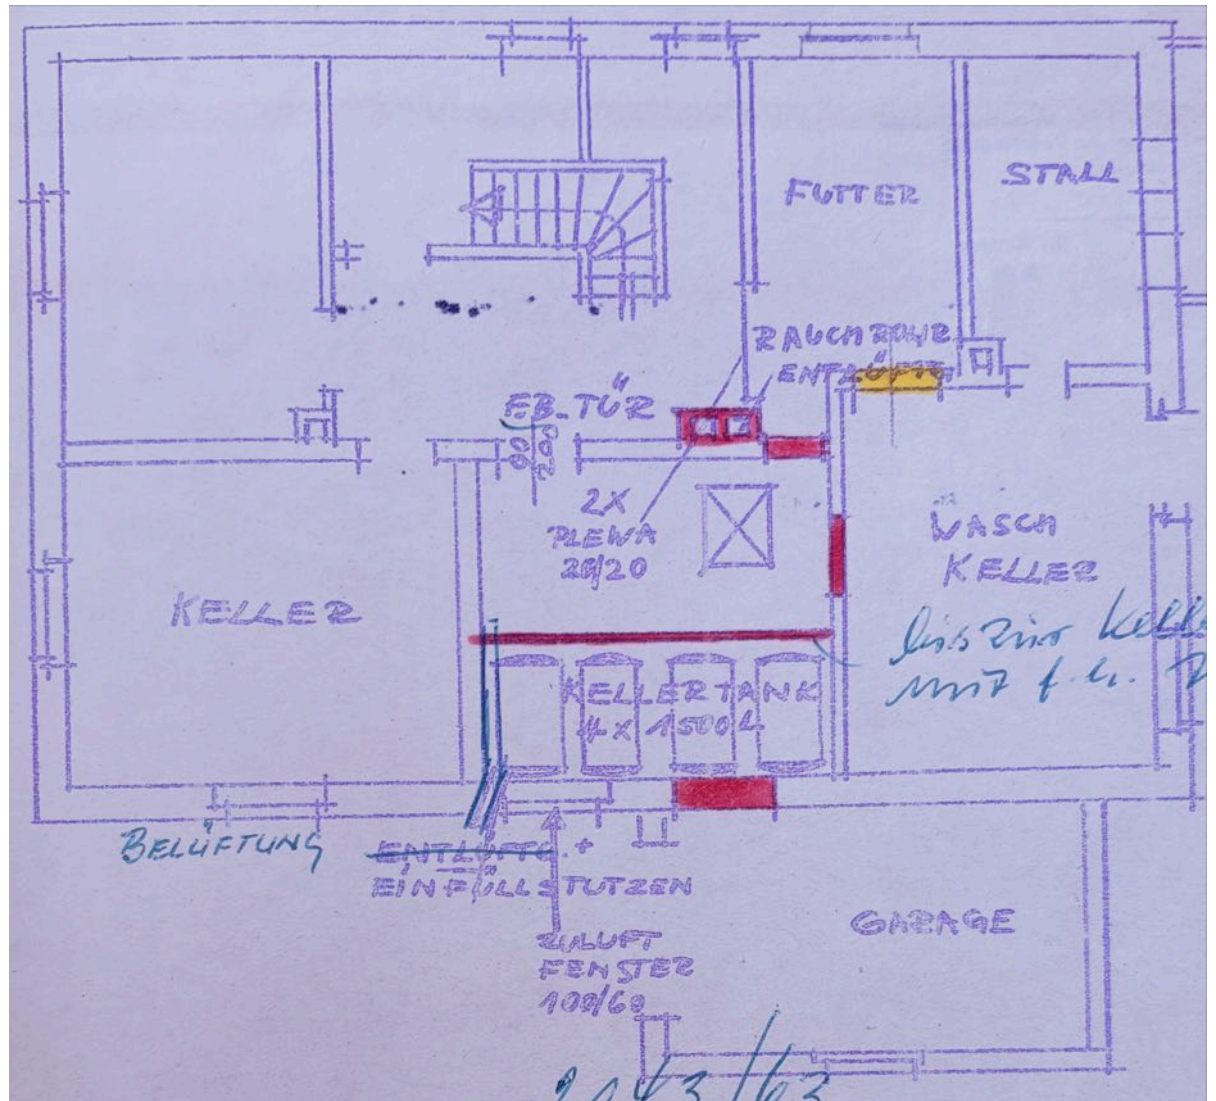 STALL
FUTTER
RAUCHROHR
ENTLÜFTG.
FB-TÜR
2X
PLEWA
20/20
WASCH
KELLER
KELLER
bis zur Kell
mit f.h.
KELLERTANK
4 x 1500 L
BELÜFTUNG
ENTLÜFTG. +
EINFÜLLSTUTZEN
GARAGE
ZULUFT
FENSTER
100/60
/63